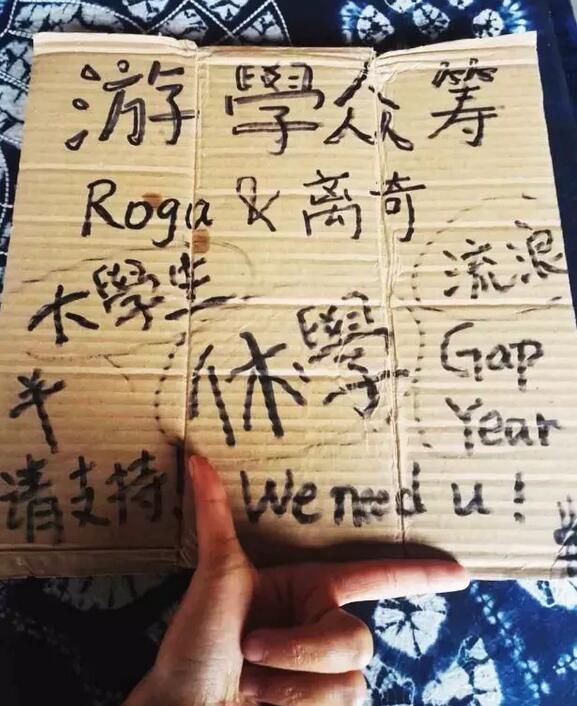 游學众筹
Roga & 离奇
木學生
流浪
休學
Gap
Year
半
请支持!
We need u!